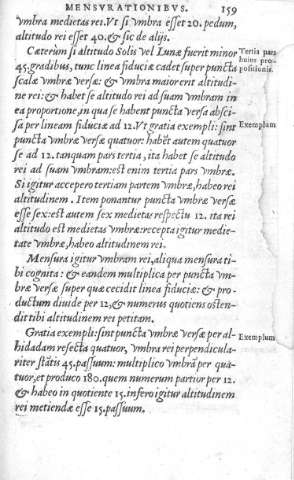 MENSVRATIONIBVS. 159
vmbra medietas rei. Vt si vmbra esset 20. pedum,
altitudo rei esset 40. & sic de alijs.
Cæterùm si altitudo Solis vel Lunæ fuerit minor
45. gradibus, tunc linea fiduciæ cadet super puncta
scalæ vmbræ versæ: & vmbra maior erit altitudi-
ne rei: & habet se altitudo rei ad suam vmbram in
ea proportione, in qua se habent puncta versa absci-
sa per lineam fiduciæ ad 12. Vt gratia exempli: sint
puncta vmbræ versæ quatuor: habēt autem quatuor
se ad 12. tanquam pars tertia, ita habet se altitudo
rei ad suam vmbram: est enim tertia pars vmbræ.
Si igitur accepero tertiam partem vmbræ, habeo rei
altitudinem. Item ponantur puncta vmbræ versæ
esse sex: est autem sex medietas respectu 12. ita rei
altitudo est medietas vmbræ: recepta igitur medie-
tate vmbræ, habeo altitudinem rei.
Mensura igitur vmbram rei, aliqua mensura ti-
bi cognita: & eandem multiplica per puncta vm-
bræ versæ super quæ cecidit linea fiduciæ: & pro-
ductum diuide per 12, & numerus quotiens osten-
dit tibi altitudinem rei petitam.
Gratia exempli: sint puncta vmbræ versæ per al-
hidadam resecta quatuor, vmbra rei perpendicula-
riter stātis 45. passuum: multiplico vmbrā per qua-
tuor, et produco 180. quem numerum partior per 12.
& habeo in quotiente 15. infero igitur altitudinem
rei metiendæ esse 15. passuum.
Tertia pars
huius pro-
positionis.
Exemplum
Exemplum